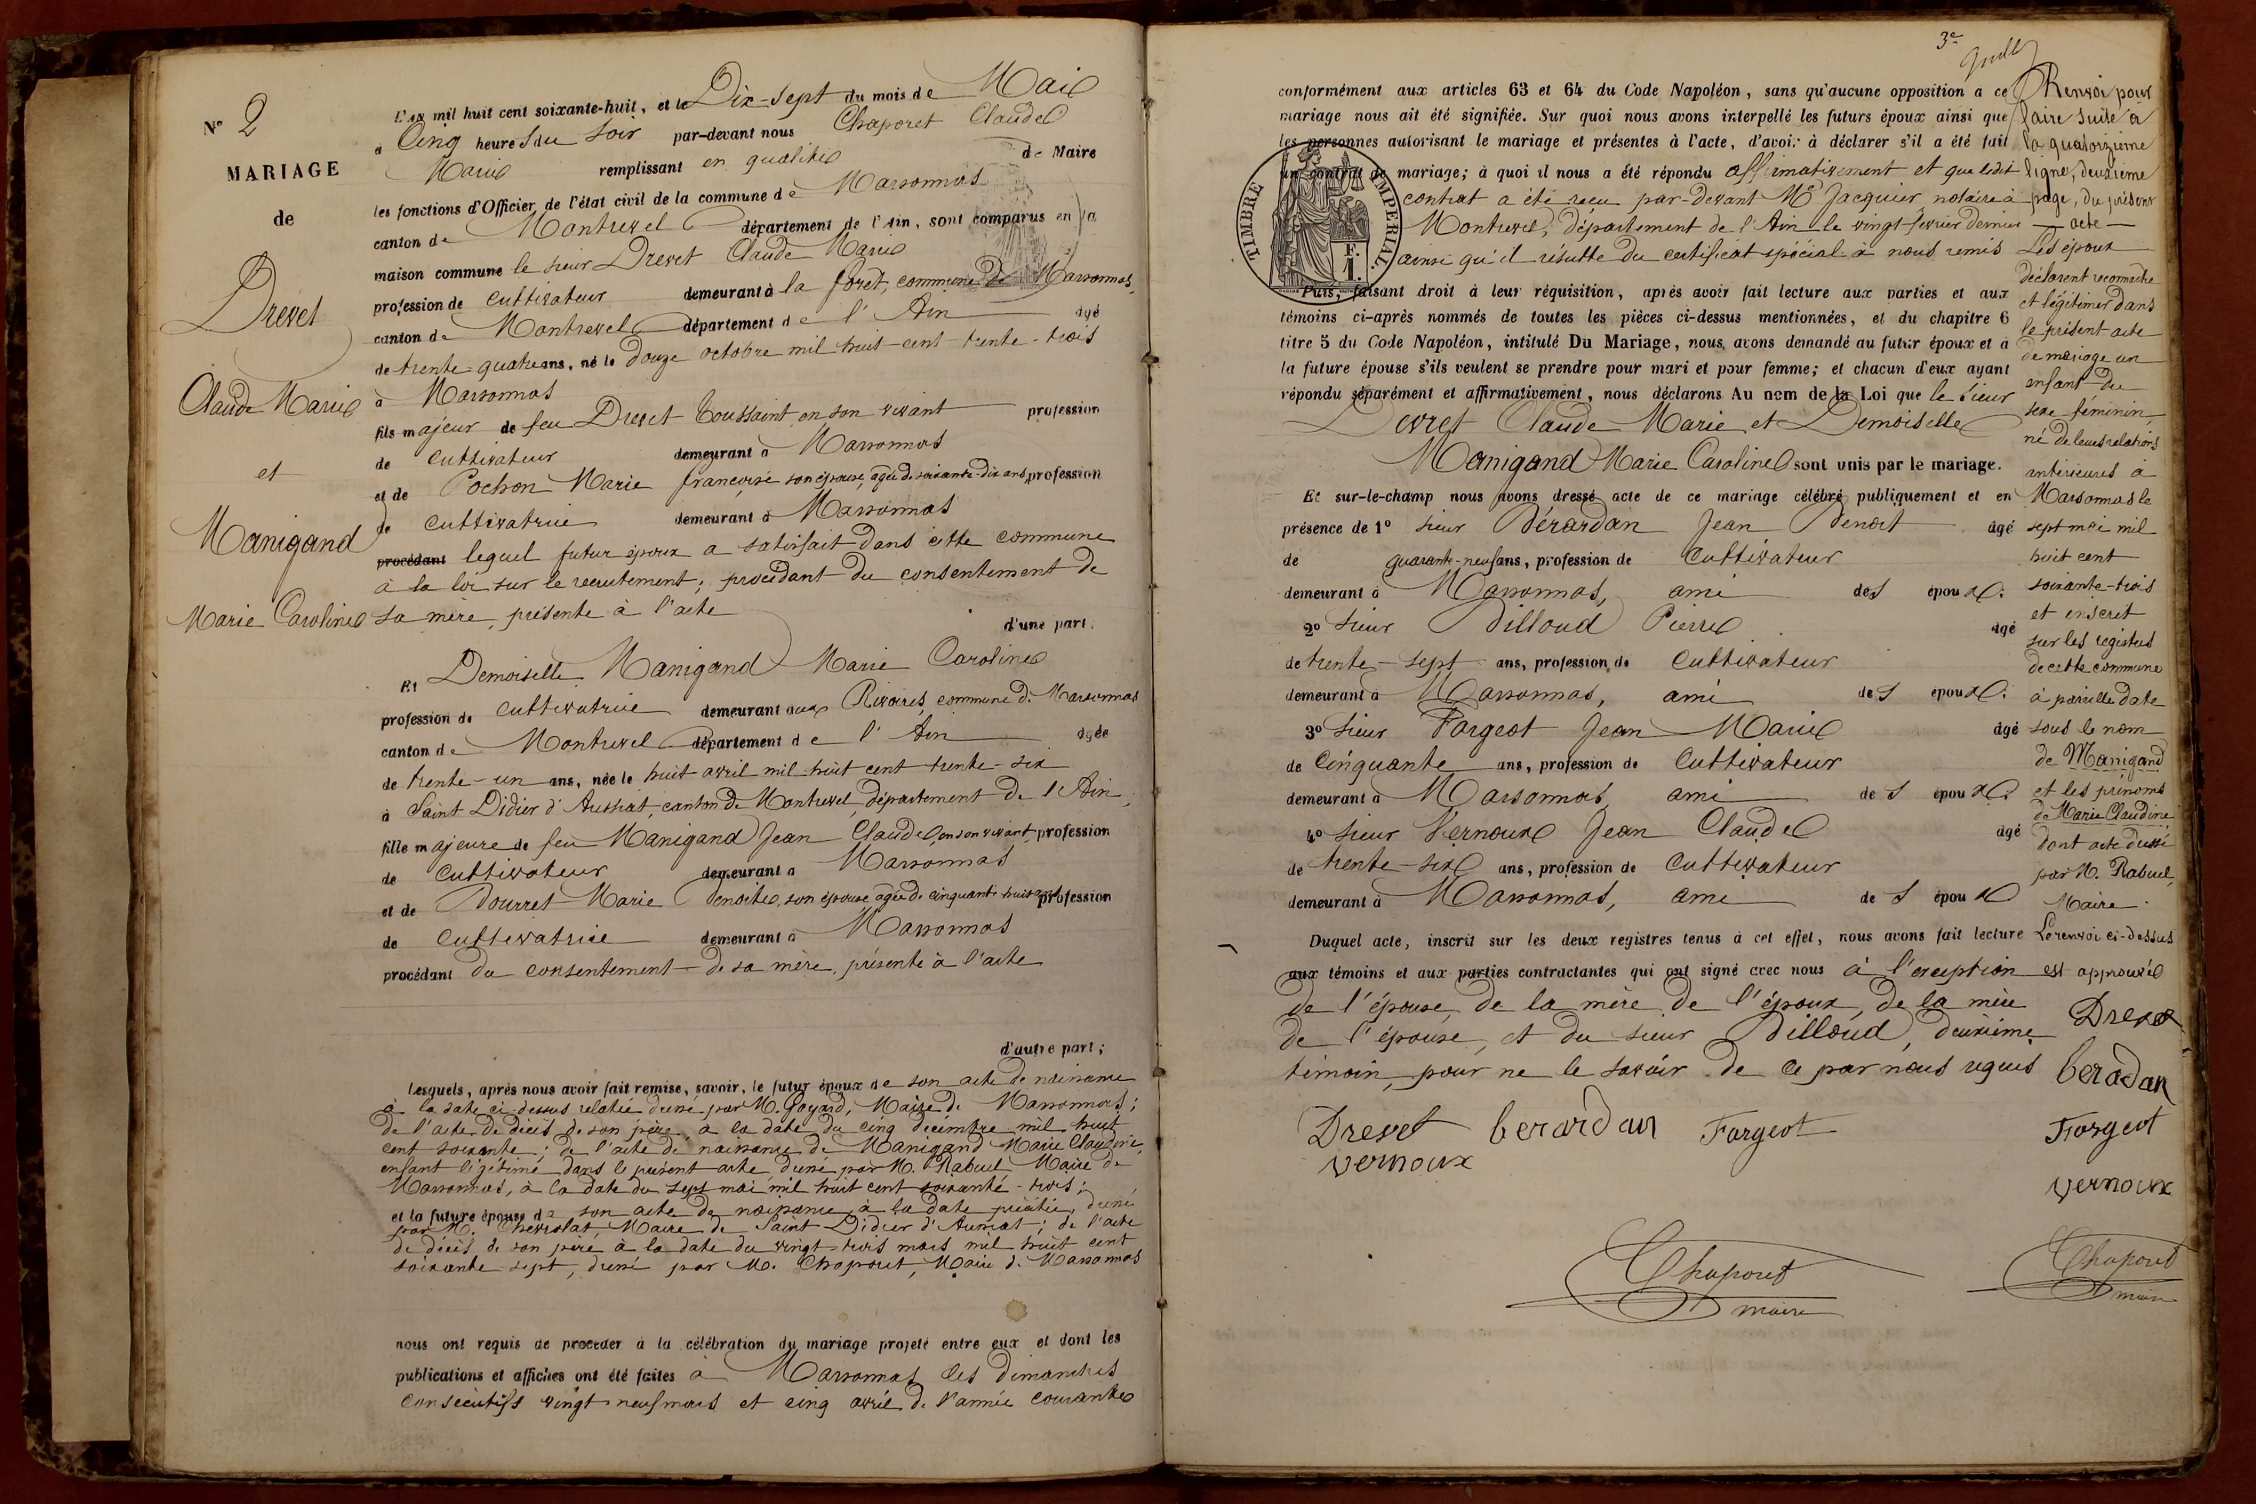 N° 2
MARIAGE
de
Drevet
Claude Marie
et
Manigand
Marie Caroline
L'an mil huit cent soixante-huit, et le Dix-sept du mois de Mai
à Cinq heures du soir par-devant nous Chaporet Claude
Marie remplissant en qualité de Maire
les fonctions d'Officier de l'état civil de la commune de Marsonnas
canton de Montrevel département de l'Ain, sont comparus en la
maison commune le sieur Drevet Claude Marie
profession de cultivateur demeurant à la forêt, commune de Marsonnas,
canton de Montrevel département de l'Ain âgé
de trente-quatre ans, né le douze octobre mil huit-cent-trente-trois
à Marsonnas
fils majeur de feu Drevet Toussaint en son vivant profession
de cultivateur demeurant à Marsonnas
et de Pochon Marie françoise son épouse, agée de soixante-dix ans, profession
de cultivatrice demeurant à Marsonnas
procédant lequel futur époux a satisfait dans cette commune
à la loi sur le recrutement; procédant du consentement de
sa mère, présente à l'acte
d'une part.
Et Demoiselle Manigand Marie Caroline
profession de cultivatrice demeurant aux Rivoires, commune de Marsonnas
canton de Montrevel département de l'Ain agée
de trente-un ans, née le huit avril mil huit cent trente-six
à Saint Didier d'Aussiat, canton de Montrevel, département de l'Ain,
fille majeure de feu Manigand Jean Claude, en son vivant, profession
de cultivateur demeurant à Marsonnas
et de Bourret Marie Benoite, son épouse agée de cinquante-huit ans, profession
de cultivatrice demeurant à Marsonnas
procédant du consentement de sa mère, présente à l'acte
d'autre part;
Lesquels, après nous avoir fait remise, savoir, le futur époux de son acte de naissance
à la date ci-dessus relatée dressé par M. Goyard, Maire de Marsonnas;
de l'acte de décès de son père, à la date du cinq décembre mil huit
cent soixante; de l'acte de naissance de Manigand Marie Claudine,
enfant légitimé dans le présent acte dressé par M. Rabuel Maire de
Marsonnas, à la date du sept mai mil huit cent soixante-trois;
et la future épouse de son acte de naissance à la date précitée, dressé
par M. Chevrolat Maire de Saint Didier d'Aussiat; de l'acte
de décès de son père à la date du vingt-trois mars mil huit cent
soixante-sept, dressé par M. Chaporet, Maire de Marsonnas
nous ont requis de procéder à la célébration du mariage projeté entre eux et dont les
publications et affiches ont été faites à Marsonnas les dimanches
consécutifs vingt-neuf mars et cinq avril de l'année courante
3e
conformément aux articles 63 et 64 du Code Napoléon, sans qu'aucune opposition a ce
mariage nous ait été signifiée. Sur quoi nous avons interpellé les futurs époux ainsi que
les personnes autorisant le mariage et présentes à l'acte, d'avoir à déclarer s'il a été fait
un contrat de mariage; à quoi il nous a été répondu affirmativement et que ledit
contrat a été reçu par-devant Me Jacquier, notaire à
Montrevel, département de l'Ain le vingt février dernier
ainsi qu'il résulte du certificat spécial à nous remis
TIMBRE IMPERIAL
Puis, faisant droit à leur réquisition, après avoir fait lecture aux parties et aux
témoins ci-après nommés de toutes les pièces ci-dessus mentionnées, et du chapitre 6
titre 5 du Code Napoléon, intitulé Du Mariage, nous avons demandé au futur époux et à
la future épouse s'ils veulent se prendre pour mari et pour femme; et chacun d'eux ayant
répondu séparément et affirmativement, nous déclarons Au nom de la Loi que le Sieur
Devret Claude Marie et Demoiselle
Manigand Marie Caroline sont unis par le mariage.
Et sur-le-champ nous avons dressé acte de ce mariage célébré publiquement et en
présence de 1° sieur Bérardan Jean Benoit âgé
de quarante-neuf ans, profession de cultivateur
demeurant à Marsonnas, ami des époux.
2° sieur Billoud Pierre âgé
de trente-sept ans, profession de cultivateur
demeurant à Marsonnas, ami des époux.
3° sieur Fargeot Jean Marie âgé
de cinquante ans, profession de cultivateur
demeurant à Marsonnas, ami des époux.
4° sieur Vernoux Jean Claude âgé
de trente-six ans, profession de cultivateur
demeurant à Marsonnas, ami des époux
Duquel acte, inscrit sur les deux registres tenus à cet effet, nous avons fait lecture
aux témoins et aux parties contractantes qui ont signé avec nous à l'exception
de l'épouse, de la mère de l'époux, de la mère
de l'épouse, et du sieur Billoud, deuxième
témoin, pour ne le savoir de ce par nous requis
Drevet berardan Fargeot
vernoux
Chaporet
maire
Renvoi pour
faire suite à
la quatorzième
ligne, deuxième
page, du présent
acte
Les époux
déclarent reconnaître
et légitimer dans
le présent acte
de mariage un
enfant du
sexe féminin,
né de leurs relations
antérieures à
Marsonnas le
sept mai mil
huit cent
soixante-trois
et inscrit
sur les registres
de cette commune
à pareille date
sous le nom
de Manigand
et les prénoms
de Marie Claudine,
dont acte dressé
par M. Rabuel,
Maire.
Le renvoi ci-dessus
est approuvé
Drevet
beradan
Fargeot
vernoux
Chaporet
maire